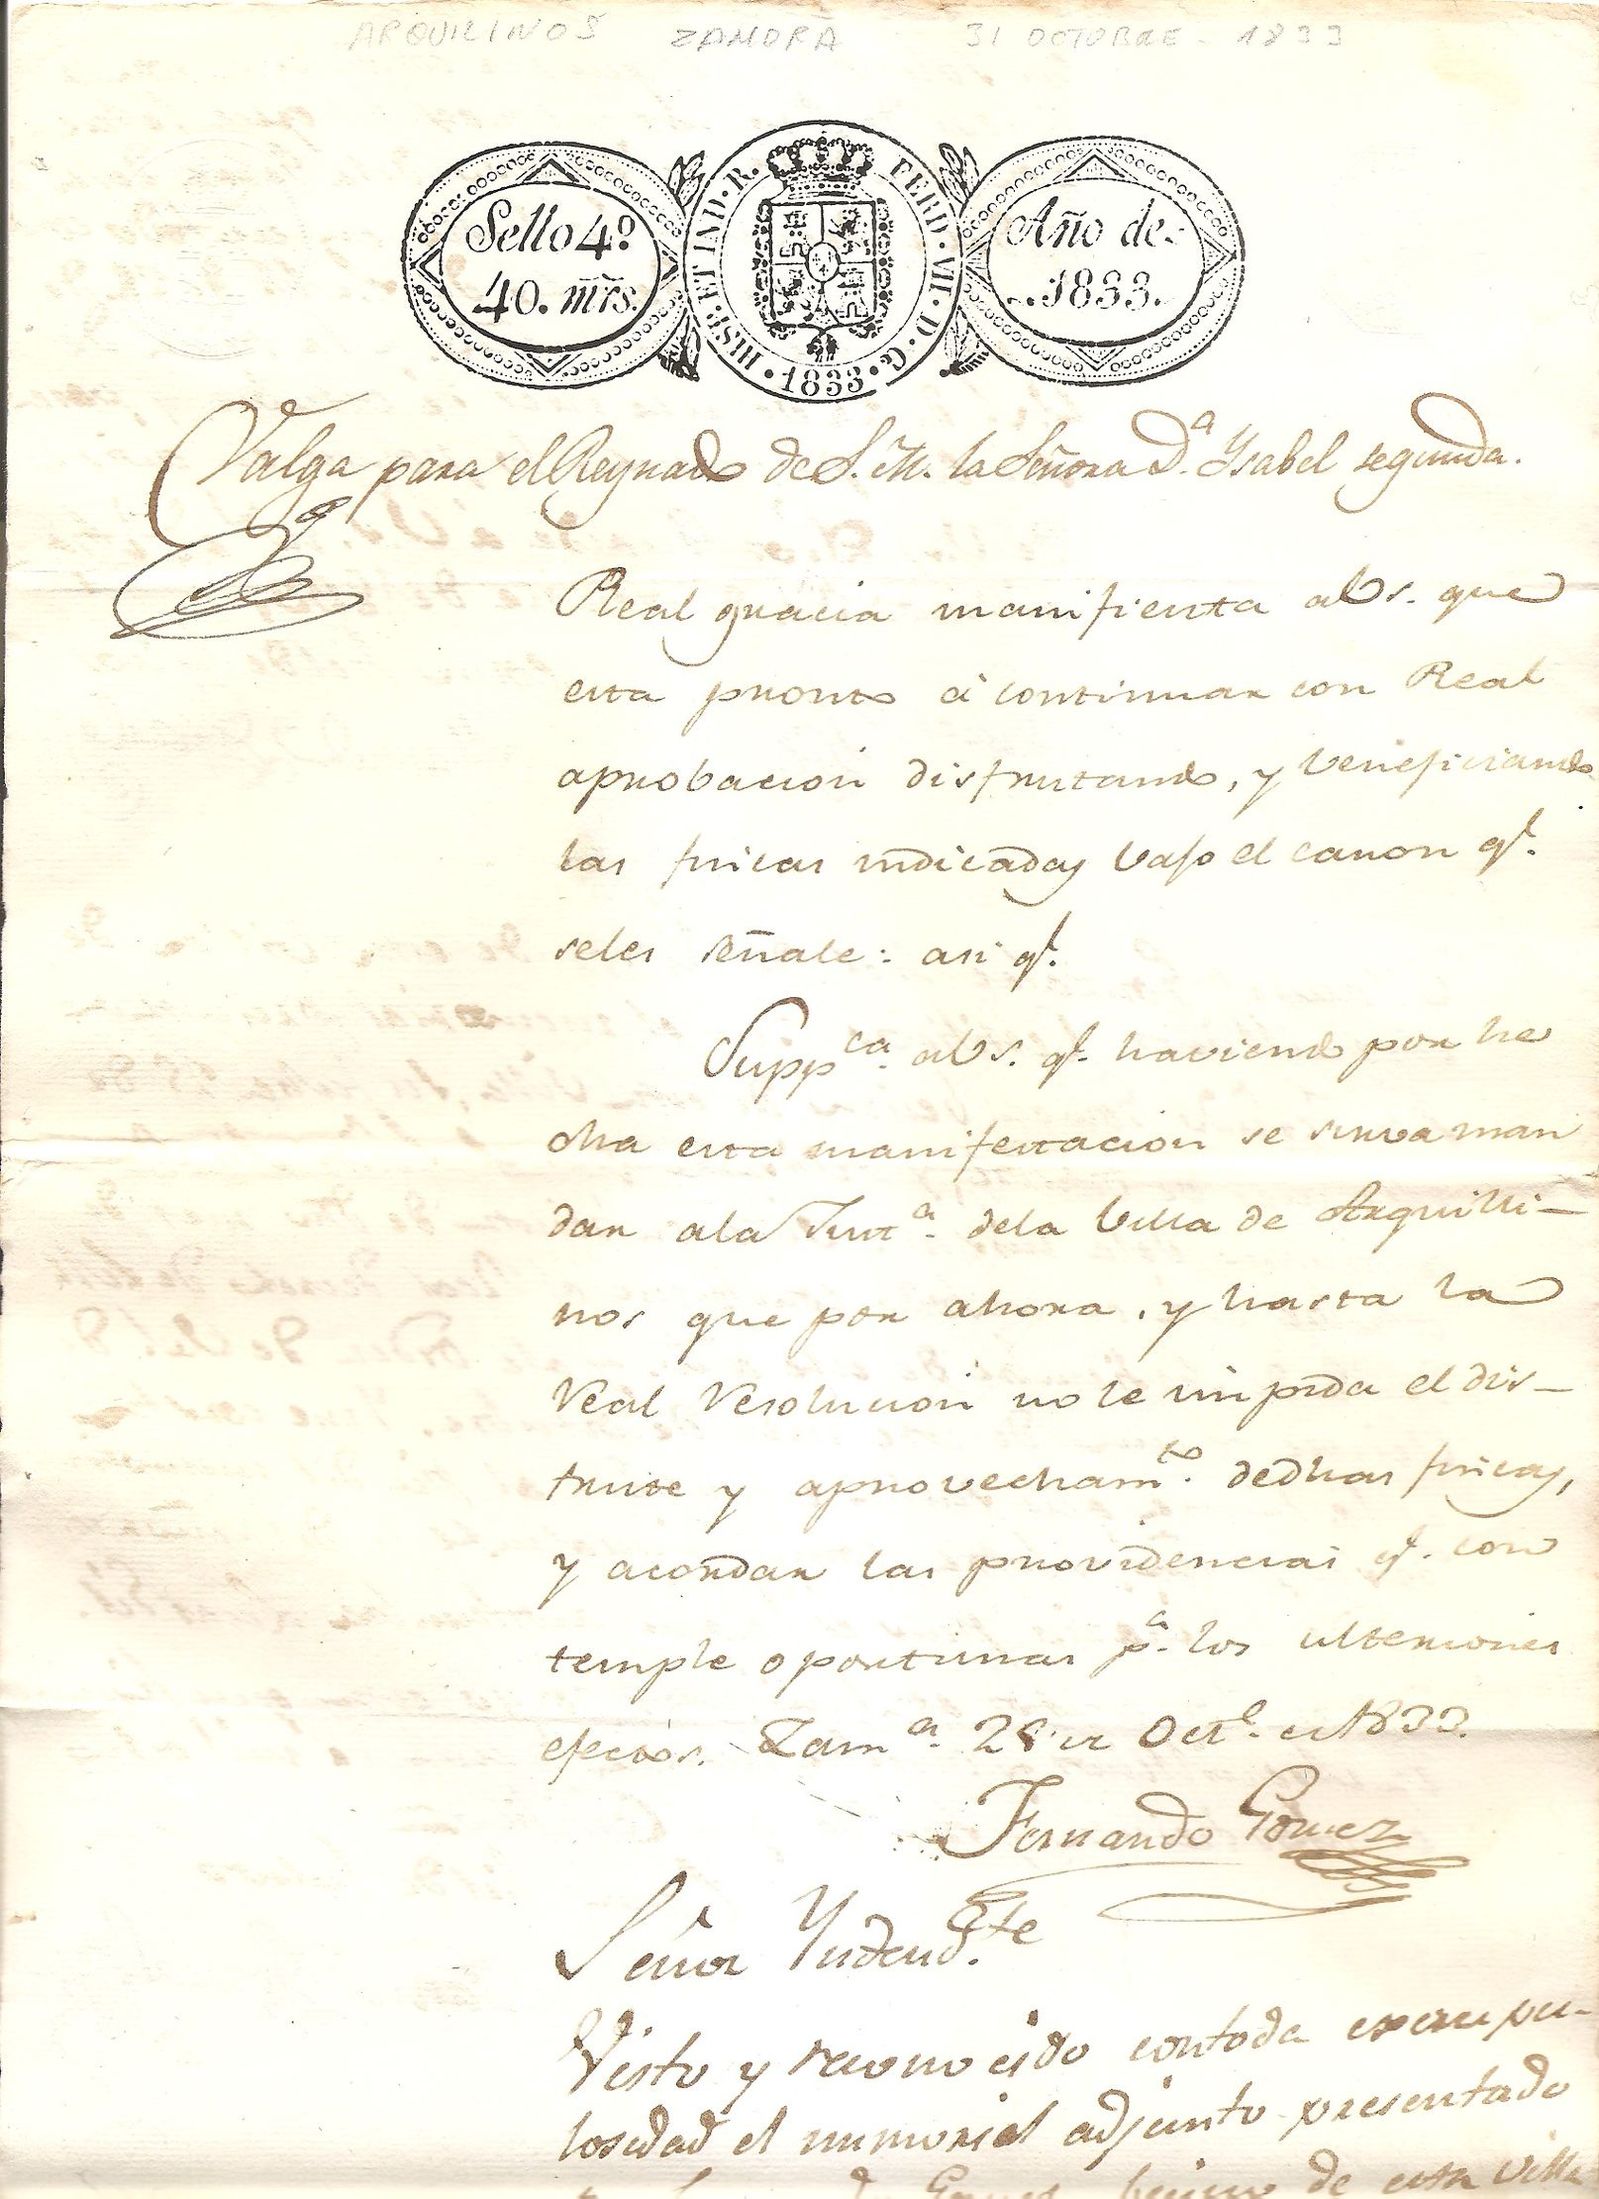 ARQUILINOS ZAMORA 31 OCTUBRE - 1833
Sello 4º
40. mrs.
HISP. ET IND. R. FERD. VII. D. G. 1833
Año de
1833.
Valga para el Reynado de S. M. la Señora D.ª Ysabel segunda.
Real gracia manifiesta a V. S. que
esta pronto á continuar con Real
aprobacion disfrutando, y veneficiando
las fincas indicadas bajo el canon q.e
seles señale: asi q.e
Supp.ca a V. S. q.e haviendo por he
cha esta manifestacion se sirva man
dar ala Just.a dela Villa de Arquilli-
nos que por ahora, y hasta la
Real Resolucion no le impida el dis-
frute y aprovecham.to de dhas fincas,
y acordar las providencias q.e con
temple oportunas p.a los ulteriores
efectos. Zam.a 28 de Oct.e de 1833.
Fernando Gomez
Señor Yntend.te
Visto y reconocido con toda escrupu-
losidad el memorial adjunto presentado
Gomez vecino de esta Villa